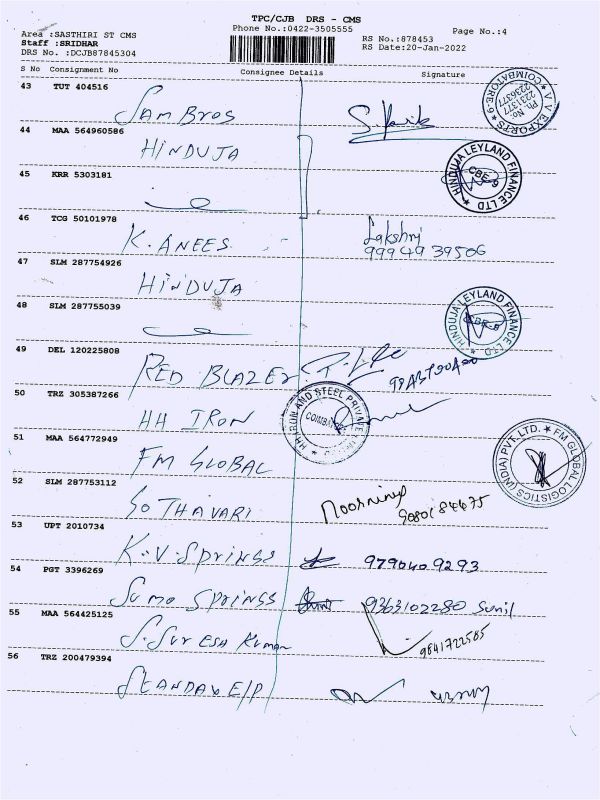 TPC/CJB DRS - CMS
Phone No.:0422-3505555
Page No.:4
Area :SASTHIRI ST CMS
RS No.:878453
Staff :SRIDHAR
RS Date:20-Jan-2022
DRS No. :DCJB87845304
S No Consignment No Consignee Details Signature
43 TUT 404516
SAM BROS
V.V EXPORTS ★ COIMBATORE-9 ★
Ph. No
2231377
2236377
44 MAA 564960586
HINDUJA
★ HINDUJA LEYLAND FINANCE LTD
CBE-9
45 KRR 5303181
46 TCG 50101978
K. ANEES
Lakshmi
99949 39506
47 SLM 287754926
HINDUJA
48 SLM 287755039
★ HINDUJA LEYLAND FINANCE LTD
49 DEL 120225808
RED BLAZER
50 TRZ 305387266
HH IRON
HH IRON AND STEEL PRIVATE
51 MAA 564772949
FM GLOBAL
★ FM GLOBAL LOGISTICS (INDIA) PVT. LTD.
52 SLM 287753112
SOTHAVARI
9080184475
53 UPT 2010734
K.V. SPRINGS
9790409293
54 PGT 3396269
SUMO SPRINGS
9363102280 Sunil
55 MAA 564425125
S. SURESH KUMAR
9841722585
56 TRZ 200479394